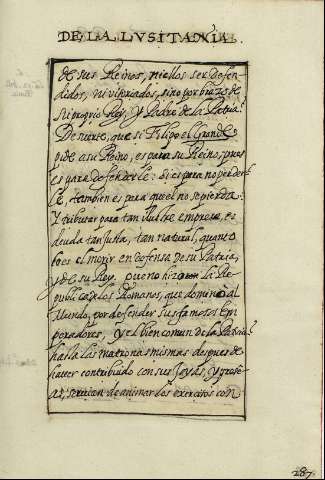 DE LA LVSITANIA.
de sus Reinos, ni ellos ser defen-
didos, ni vibrados, sino por brazos de
su proprio Rey, y Padre de la Patria.
De suerte, que si Filipo el Grande
pide a su Reino, es para su Reino, pues
es para defenderle: si es para no perder-
le, tambien es para que el no se pierda.
Y tributar para tan Ilustre empresa, es
deuda tan justa, tan natural, quanto
lo es el morir en defensa de su Patria,
y de su Rey. que no hizo la Re-
publica de los Romanos, que dominò al
Mundo, por defender sus famosos Em-
peradores, y el bien comun de la Patria?
hasta las matronas mismas despues de
haver contribuido con sus Joyas, y prese-
as, servian de animar los exercitos con
287